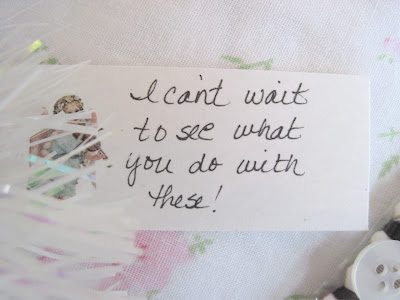 I can't wait
to see what
you do with
these!